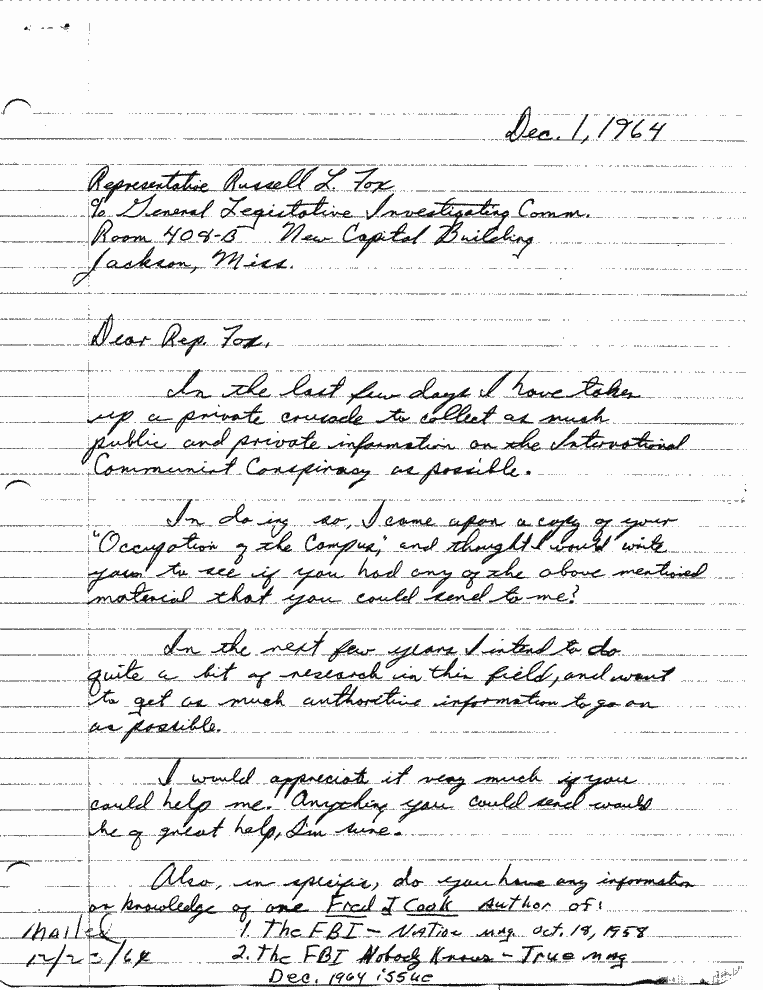 Dec. 1, 1964
Representative Russell L. Fox
% General Legistative Investigating Comm.
Room 408-B New Capital Building
Jackson, Miss.
Dear Rep. Fox,
In the last few days I have taken
up a private crusade to collect as much
public and private information on the International
Communist Conspiracy as possible.
In doing so, I came upon a copy of your
"Occupation of the Campus," and thought I would write
you to see if you had any of the above mentioned
material that you could send to me?
In the next few years I intend to do
quite a bit of research in this field, and want
to get as much authoritive information to go on
as possible.
I would appreciate it very much if you
could help me. Anything you could send would
be of great help, I'm sure.
Also, in specific, do you have any information
or knowledge of one Fred J Cook author of:
Mailed
1. The FBI - Nation mag. Oct. 18, 1958
12/23/64
2. The FBI Nobody Knows - True mag
Dec. 1964 issue